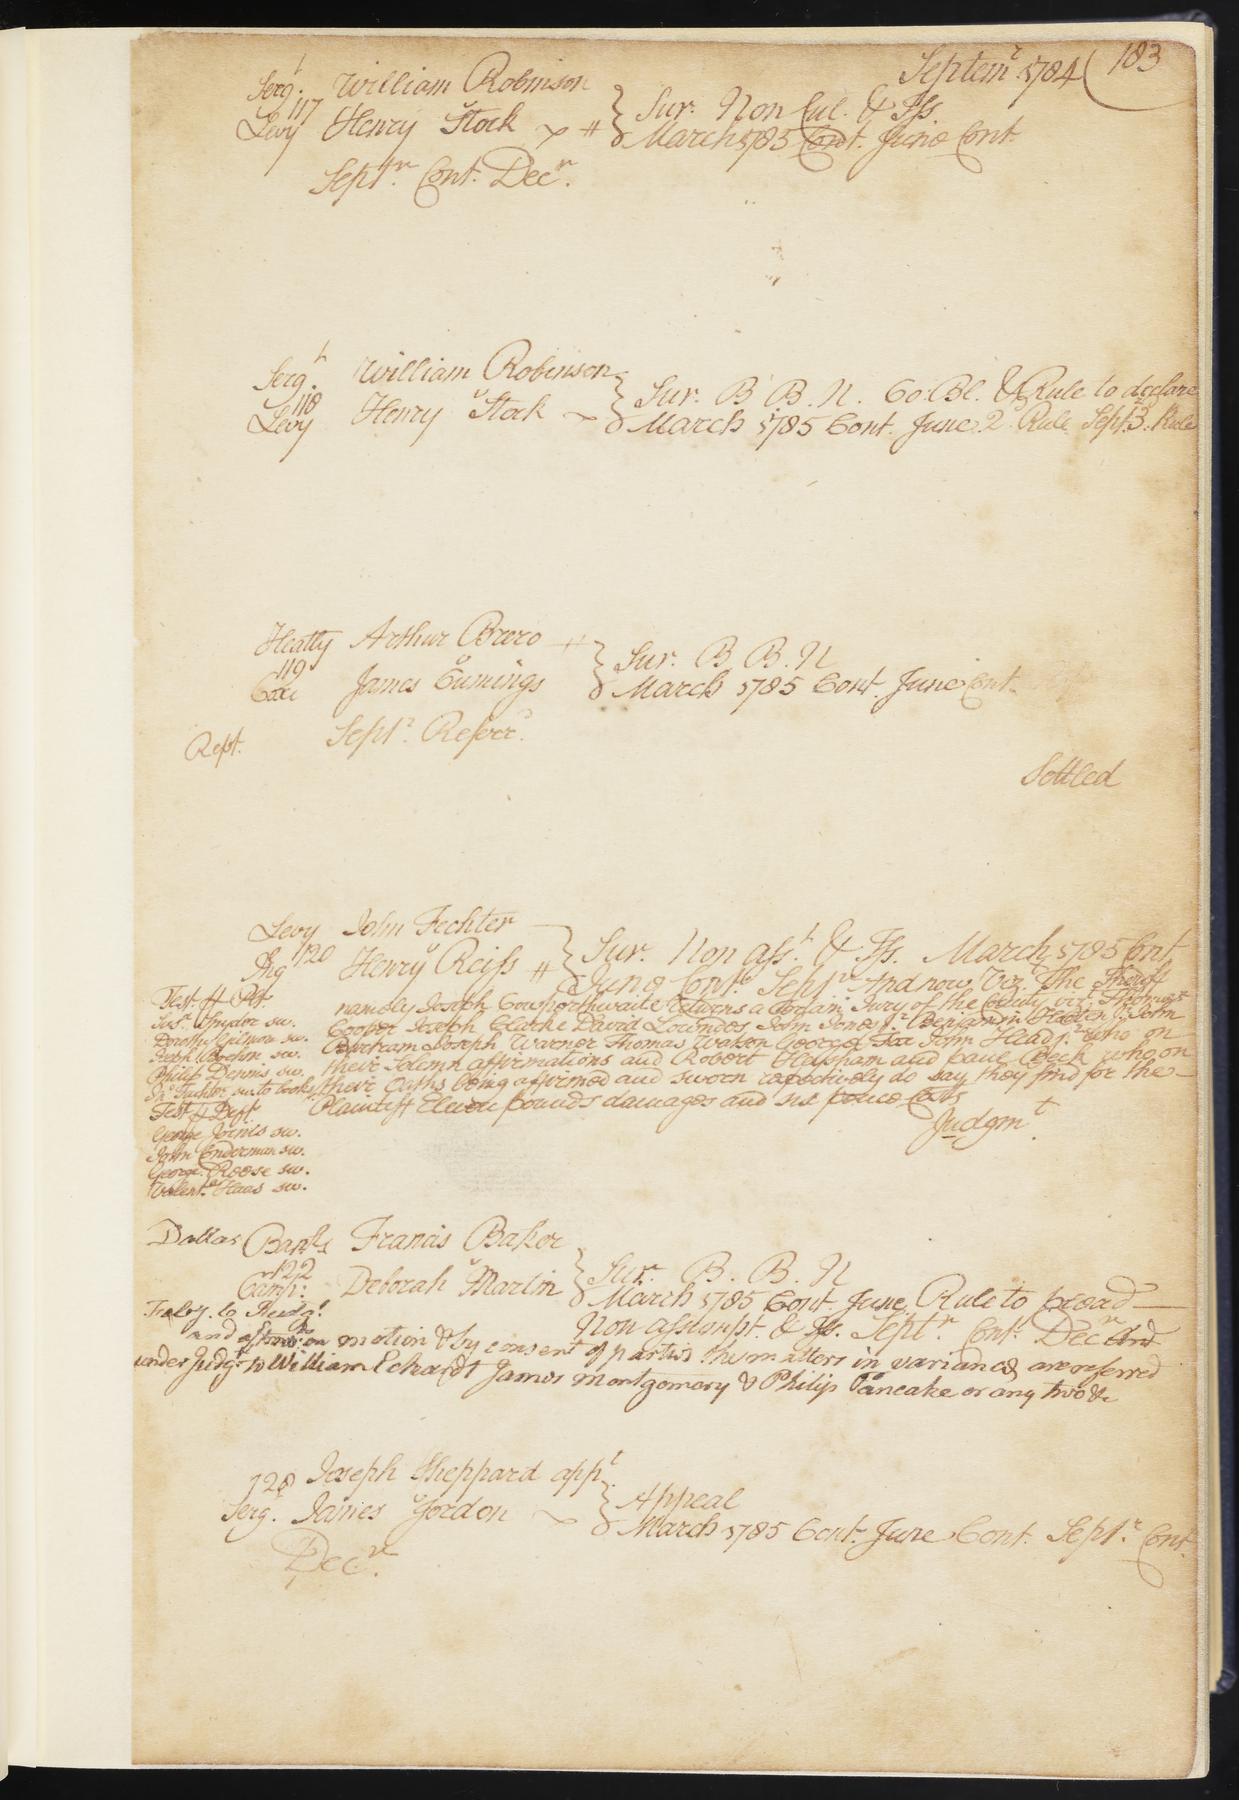 Septemr. 1784 183
Sergt. William Robinson
117
Levy Henry Stock
Sur. Non Cul. & Iss.
March 1785 Cont. June Cont.
Septr. Cont. Decr.
Sergt. William Robinson
118
Levy Henry Stock
Sur. B. B. N. Co. Bl. & Rule to declare
March 1785 Cont. June 2d Rule Sept. 3d Rule
Heatly Arthur
119
Coxe James Cumings
Sur. B. B. N
March 1785 Cont. June Cont.
Septr. Referrd.
Rept.
Settled
Levy John Fechter
120
Henry Reiss
Sur. Non Asst. & Iss. March 1785 Cont
June Cont. Septr. And now Viz. The Sheriff
namely Joseph Cowperthwaite returns a certain Jury of the County viz. Thomas
Cooper Joseph Clarke David Lowndes John Jones Jr. Benjamin John
Joseph Warner Thomas Watson George Fox John who on
their Solemn affirmations and Robert Heysham and Paul Beck who on
their Oaths being affirmed and sworn respectively do say they find for the
Plaintiff Eleven pounds damages and six pence Costs
Judgmt.
Test. pr. Plt.
Jno. Snyder sw.
Dorothy sw.
Jacob Boehm sw.
Philip Dennis sw.
sw. to books
Test. pr. Deft.
George sw.
John Enderman sw.
George Roose sw.
Valent. Haas sw.
Dallas Banks Francis Baker
122
Camp: Deborah Martin
Sur. B. B. N
March 1785 Cont. June Rule to plead
Non assumpt. & Iss. Septr. Cont. Decr. And
on motion & by consent of parties the matters in variance are referred
under Judgt. to William Eckardt James Montgomery & Philip Pancake or any two &c
128 Joseph Sheppard appt.
Serg. James Gordon
Appeal
March 1785 Cont. June Cont. Septr. Cont.
Decr.